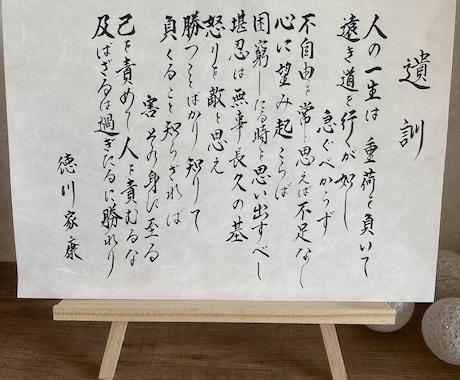 遺訓
人の一生は 重荷を負いて
遠き道を行くが如し
急ぐべからず
不自由を常と思えば不足なし
心に望み起こらば
困窮したる時を思い出すべし
堪忍は無事長久の基
怒りを敵と思え
勝つことばかり知りて
負くること知らざれば
害その身に至る
己を責めて人を責むるな
及ばざるは過ぎたるに勝れり
徳川家康